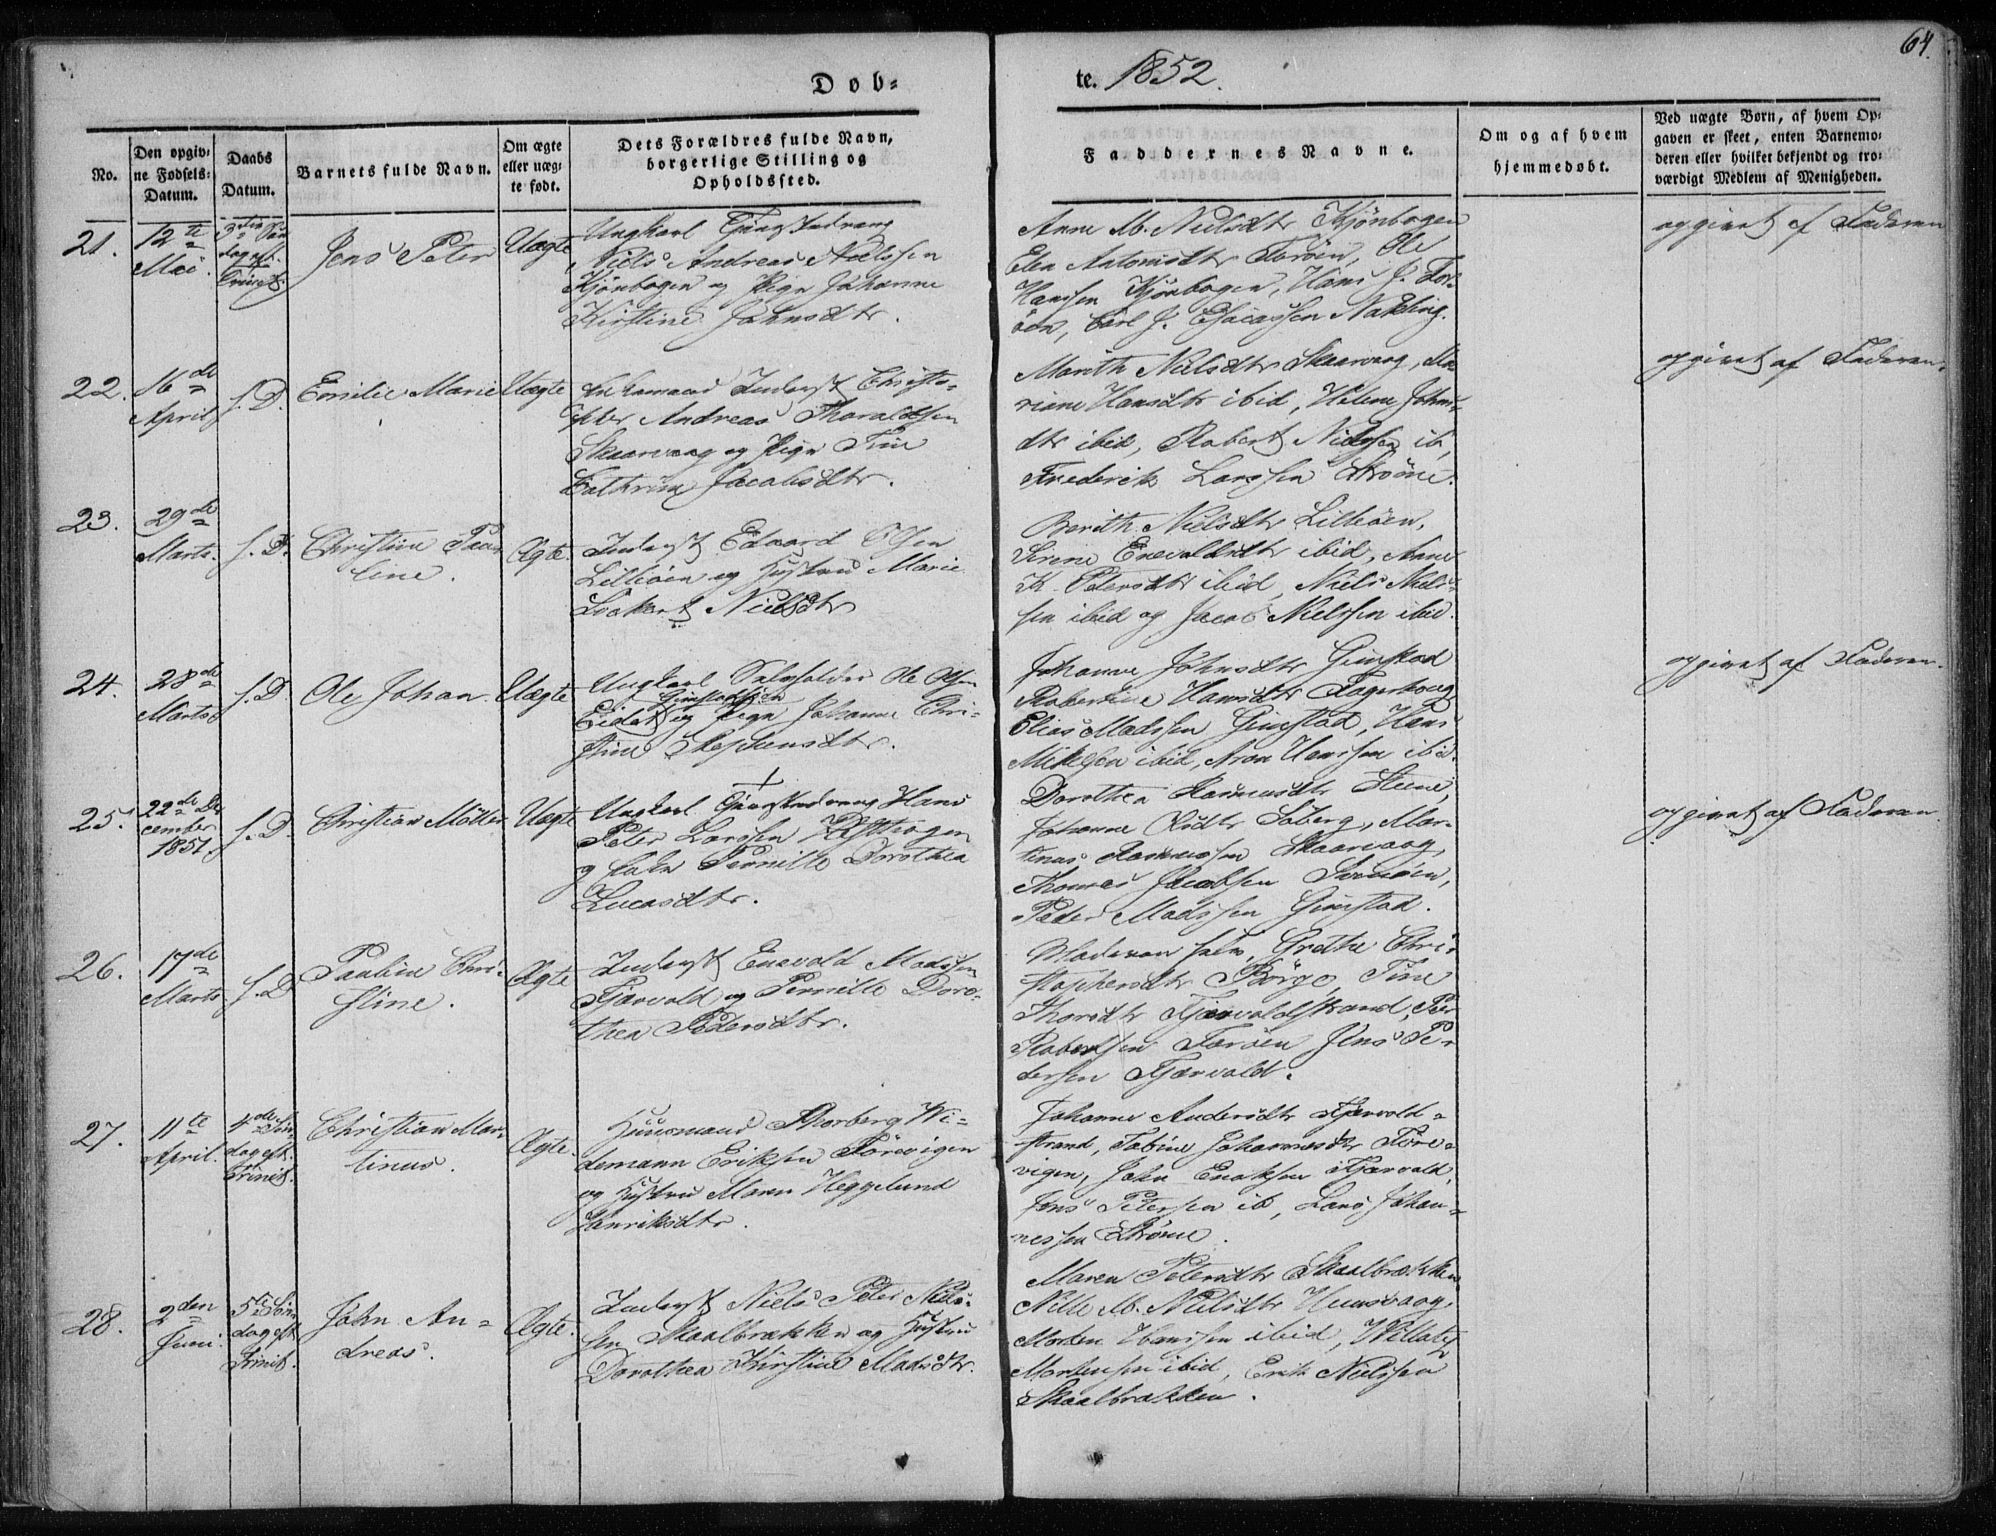 Dob=
te. 1852.
64.
No.
Den opgiv=
ne Fødsels=
Datum.
Daabs
Datum.
Barnets fulde Navn.
Om ægte
eller uæg=
te født.
Dets Forældres fulde Navn,
borgerlige Stilling og
Opholdssted.
Faddernes Navne.
Om og af hvem
hjemmedøbt.
Ved uægte Børn, af hvem Op=
gaven er skeet, enten Barnemo=
deren eller hvilket bekjendt og tro=
værdigt Medlem af Menigheden.
21.
12te
Mai.
3die Søn
dag eft.
Trinit.
Jens Peter
Uægte
Ungkarl
Niels Andreas Nielssen
Kjönbogen og Pige Johanne
Kirstine Johnsdtr.
Anne M. Nielsdtr Kjönbogen
Elen Antonisdtr Toröen, Ole
Hanssen Kjönbogen, Hans J. Tor=
öen, Carl J. Esaiassen Nakling.
opgivet af Faderen
22.
16de
April
s. D.
Emilie Marie
Uægte
Enkemand Inderst Christo=
pher Andreas Tharaldsen
Skaarvaag og Pige Tine
Cathrine Jacobsdtr.
Marith Nielsdtr Skaarvaag, Ma
riane Hansdtr ibid, Helene Johns=
dtr ibid, Robert Nielssen ib,
Frederik Larssen Ströme.
opgivet af Faderen.
23.
29de
Marts.
s. D.
Christine Pau
line.
Ægte.
Inderst Edvard Olsen
Lilleöen og Hustru Marie
Lockert Nielsdtr
Berith Nielsdtr Lilleöen,
Sirene Enevaldsdtr ibid, Anne
K. Petersdtr ibid, Niels Niels=
sen ibid og Jacob Nielssen ibid.
24.
28de
Marts
s. D.
Ole Johan.
Uægte
Ungkarl Selvfolder Ole Olsen
Gimstadöien
Eidet og Pige Johanne Chri=
stine Stephensdtr.
Johanne Johnsdtr Gimstad
Robertine Hansdtr Fagerhoug
Elias Madssen Gimstad, Hans
Mikelsen ibid, Aron Hanssen ibid.
opgivet af Faderen.
25.
22de De
cember
1851.
s. D.
Christian Möller
Uægte
Ungkarl Hans
Peter Larssen
og Enke Pernille Dorothea
Lucasdtr.
Dorothea Rasmusdtr Steine,
Johanne Soberg, Mar=
tinus Rasmussen Skaarvaag,
Thomas Jacobsen
Peder Madssen Gimstad.
opgivet af Faderen.
26.
17de
Marts
s. D
Pauline Chri=
stine.
Ægte
Inderst Enevold Madssen
Fjærvold og Pernille Doro=
thea Pedersdtr.
Moderen selv, Grethe Chri=
stophersdtr Börge, Tine
Thorsdtr Fjærvoldstrand, Peter
Robertsen Toröen Jens Pe=
dersen Fjærvold.
27.
11te
April.
4de Søn=
dag eft.
Trinit.
Christian Mar=
tinus.
Ægte.
Huusmand Thorberg Wi=
demann Eriksen Förevigen
og Hustru Maren Heggelund
Henriksdtr.
Johanne Andersdtr Fjærvold=
strand, Tobine Johannesdtr Före=
vigen, John Enoksen Fjærvold,
Jens Petersen ib, Lars Johan=
nessen Ströme.
28.
2den
Juni.
5te Søn=
dag eft
Trinit.
John An=
dreas.
Ægte.
Inderst Niels Peter Niels=
sen Skaalbrækken og Hustru
Dorothea Kirstine Madsdtr.
Maren Petersdtr Skaalbrækken
Nille M. Nielsdtr Hunsvaag,
Morten Hanssen ibid, Willats
Mortensen ibid, Erik Nielssen
Skaalbrækken.